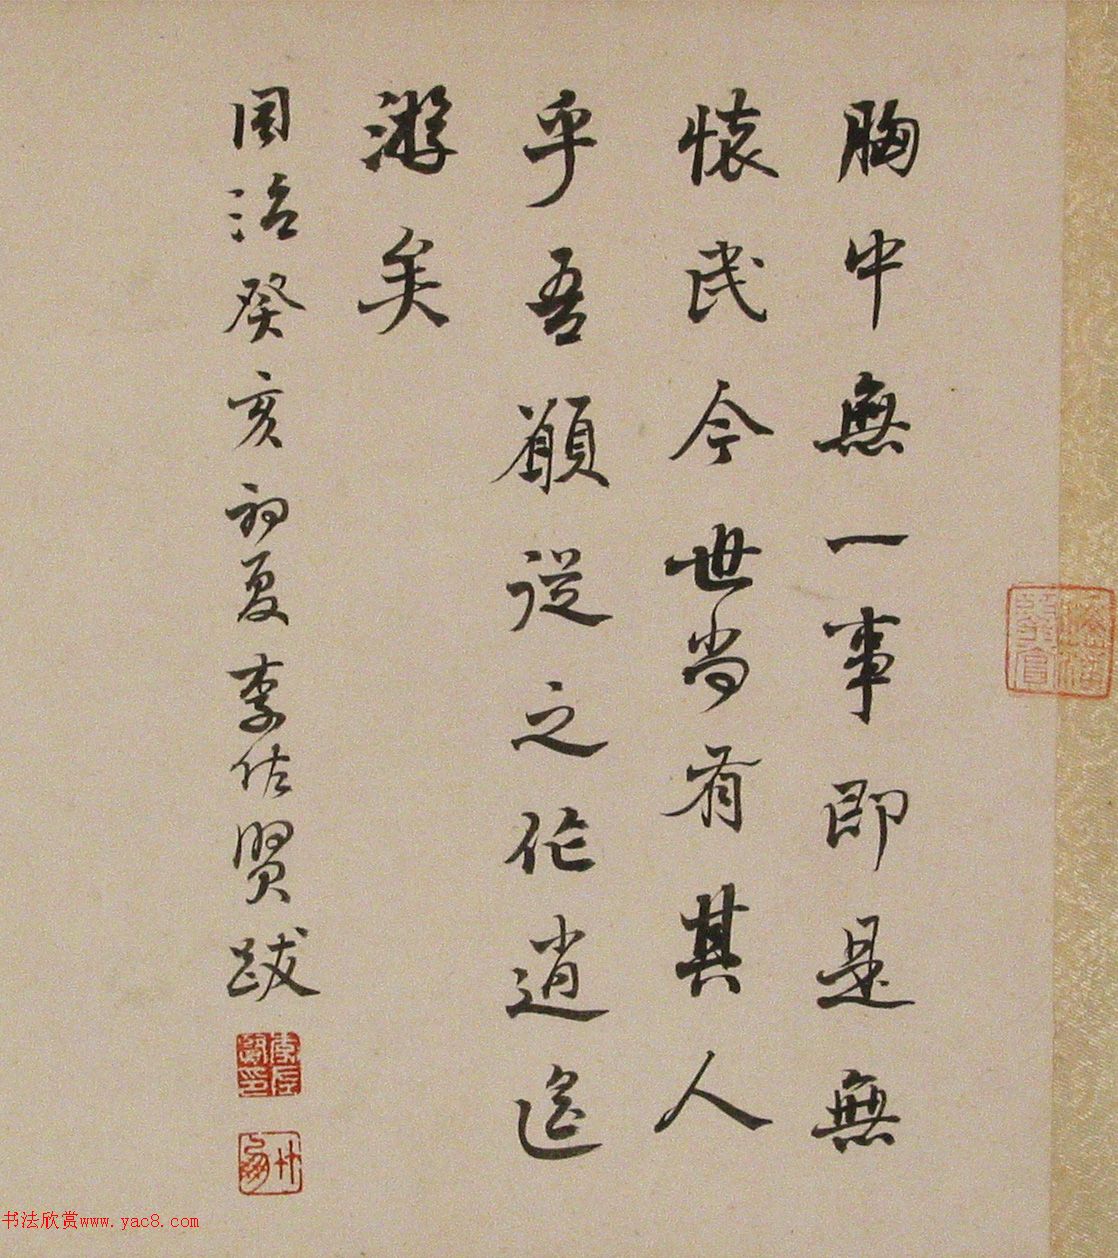 胸中無一事即是無
懷民今世尚有其人
乎吾願從之作逍遥
游矣
同治癸亥初夏李佐賢跋
李佐賢印
竹朋
书法欣赏www.yac8.com